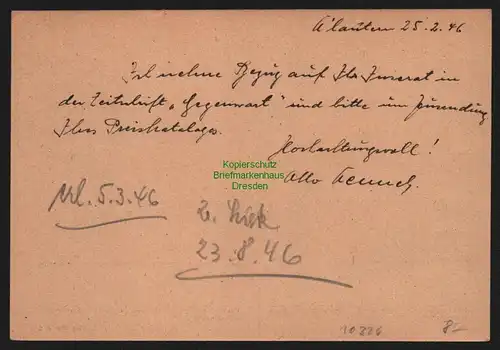 Planten 25.2.46
Ich nehme Bezug auf Ihr Inserat in
der Zeitschrift „Gegenwart" und bitte um Zusendung
Ihres Preiskataloges.
Hochachtungsvoll!
Otto
Kopierschutz
Briefmarkenhaus
Dresden
erl. 5.3.46
2.
23.8.46
10326
8-